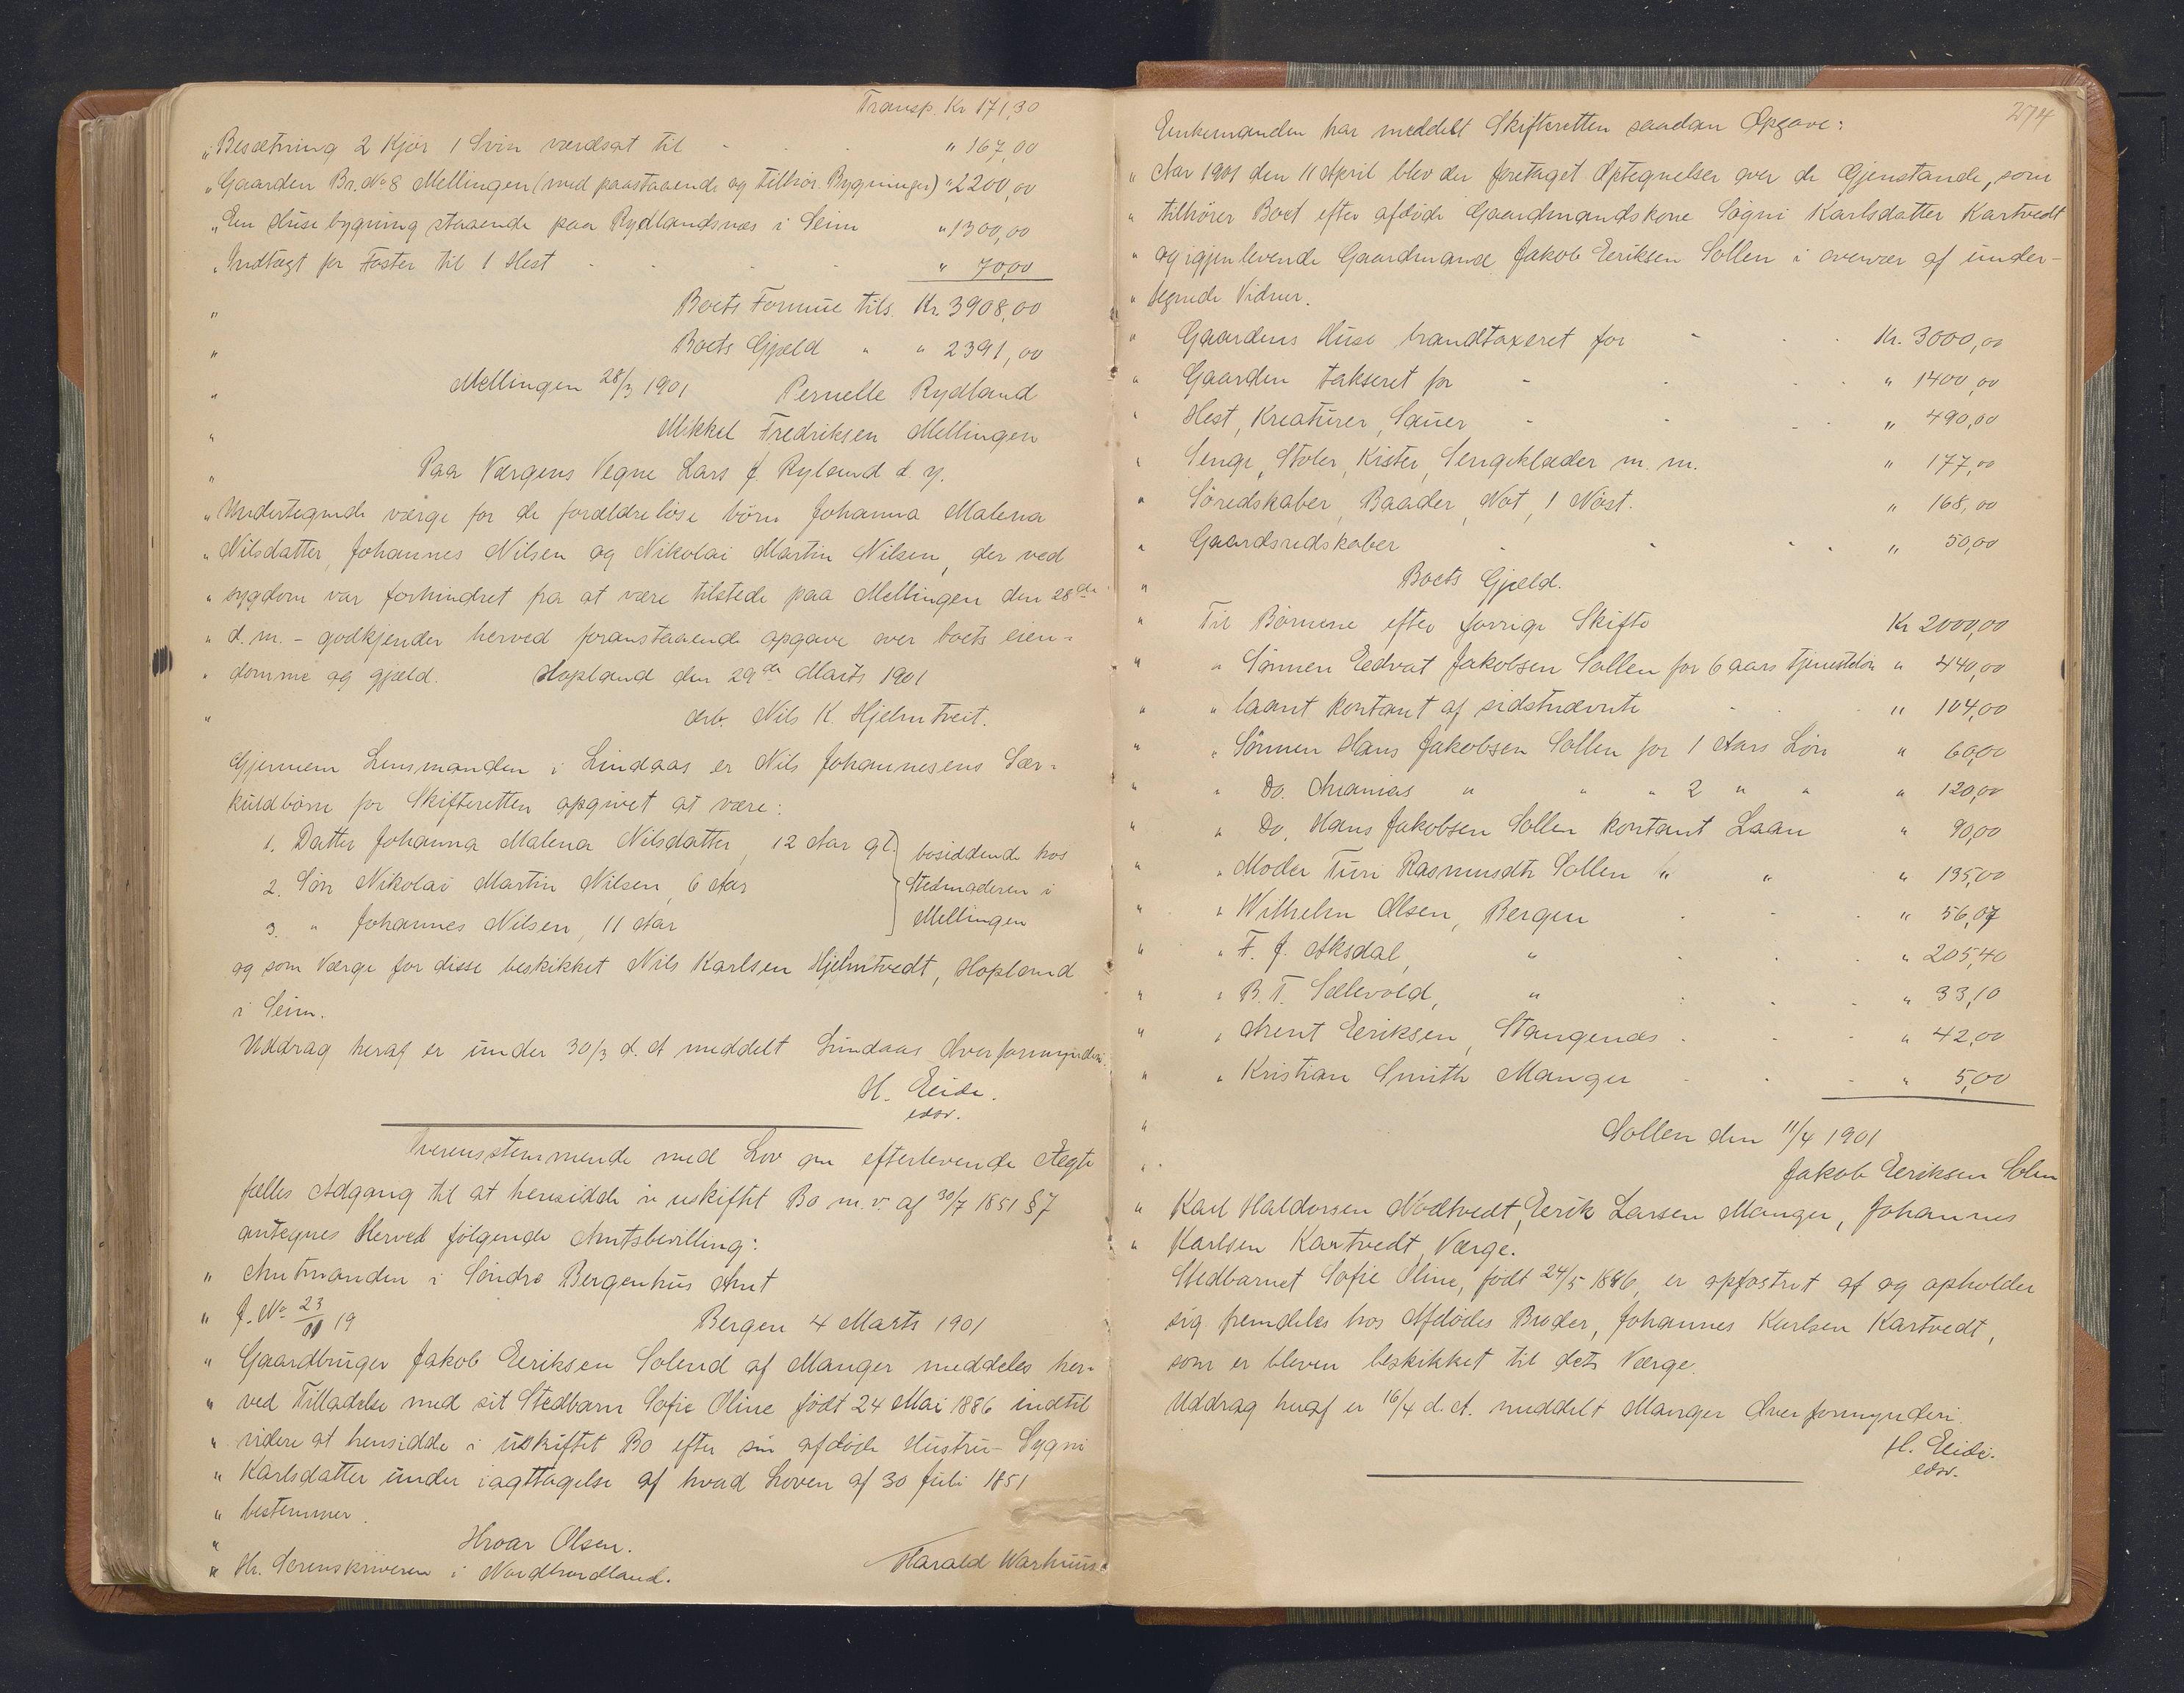 Transp. Kr 171,30
" Besætning 2 Kjør 1 Svin værdsat til - - " 167,00
" Gaarden Br. No 8 Mellingen (med paastaaende og tilhør. Bygninger) " 2200,00
" En Husebygning staaende paa Rydlandsnæs i Seim " 1300,00
" Indtægt for Foster til 1 Hest - - - " 70,00
" Boets Formue tils. Kr. 3908,00
" Boets Gjæld " " 2391,00
" Mellingen 28/3 1901 Pernelle Rydland
" Mikkel Fredriksen Mellingen
" Paa Værgens Vegne Lars J. Ryland d. y.
" Undertegnede værge for de forældreløse børn Johanna Malena
" Nilsdatter, Johannes Nilsen og Nikolai Martin Nilsen, der ved
" sygdom var forhindret fra at være tilstede paa Mellingen den 28de
" d. m. - godkjender herved foranstaaende opgave over boets eien-
" domme og gjæld. Hopland den 29de Marts 1901
" ærb. Nils K. Hjelmtveit.
Gjennem Lensmanden i Lindaas er Nils Johannesens Sær-
kuldbørn for Skifteretten opgivet at være:
1. Datter Johanna Malena Nilsdatter, 12 Aar gl. } bosiddende hos
2. Søn Nikolai Martin Nilsen, 6 Aar Stedmoderen i
3. " Johannes Nilsen, 11 Aar Mellingen
og som Værge for disse beskikket Nils Karlsen Hjelmtvedt, Hopland
i Seim.
Uddrag heraf er under 30/3 d. A meddelt Lindaas Overformynderi.
H. Eide.
edsv.
Overensstemmende med Lov om efterlevende Ægte
fælles Adgang til at hensidde i uskiftet Bo m. v. af 30/7 1851 § 7
antegnes Herved følgende Amtsbevilling:
" Amtmanden i Søndre Bergenhus Amt
" J. No. 23/01 19 Bergen 4 Marts 1901
" Gaardbruger Jakob Eeriksen Solend af Manger meddeles her-
" ved Tilladelse med sit Stedbarn Sofie Oline født 24 Mai 1886 indtil
" videre at hensidde i uskiftet Bo efter sin afdøde Hustru Sygni
" Karlsdatter under iagttagelse af hvad Loven af 30 Juli 1851
" bestemmer.
" Hroar Olsen.
" Hr. Sorenskriveren i Nordhordland. Harald Warhuus
274
Enkemanden har meddelt Skifteretten saadan Opgave:
" Aar 1901 den 11 April blev der foretaget Optegnelser over de Gjenstande, som
" tilhører Boet efter afdøde Gaardmandskone Sogni Karlsdatter Kartvedt
" og igjenlevende Gaardmand Jakob Eeriksen Sollen i overvær af under-
" tegnede Vidner.
" Gaardens Huse brandtaxeret for - Kr. 3000,00
" Gaarden takseret for - " 1400,00
" Hest, Kreaturer, Sauer - " 490,00
" Senge, Stoler, Kister, Sengeklæder m. m. " 177,00
" Søredskaber, Baader, Not, 1 Nøst. " 168,00
" Gaardsredskaber " 50,00
" Boets Gjæld.
" Til Børnene efter forrige Skifte Kr 2000,00
" " Sønnen Eedvat Jakobsen Sollen for 6 aars tjenesteløn " 440,00
" " laant kontant af sidstnævnte " 104,00
" " Sønnen Hans Jakobsen Sollen for 1 Aars Løn " 60,00
" " Do. Ananias " " " 2 " " " 120,00
" " Do. Hans Jakobsen Sollen kontant Laan " 90,00
" " Moder Turi Rasmusdtr Sollen " " " 195,00
" " Wilhelm Olsen, Bergen " 56,07
" " F. J. Aksdal, " " 205,40
" " B. T. Sellevold, " " 33,10
" " Arent Eeriksen, Stangenæs " 42,00
" " Kristian Smith Manger " 5,00
" Sollen den 11/4 1901
" Jakob Eeriksen Solen
" Karl Haldorsen Nodtvedt, Eerik Larsen Manger, Johannes
" Karlsen Kartvedt, Værge.
Stedbarnet Sofie Oline, født 24/5 1886, er opfostret af og opholder
sig fremdeles hos Afdødes Broder, Johannes Karlsen Kartvedt,
som er bleven beskikket til dets Værge.
Uddrag heraf er 16/4 d. A. meddelt Manger Overformynderi.
H. Eide.
edsv.